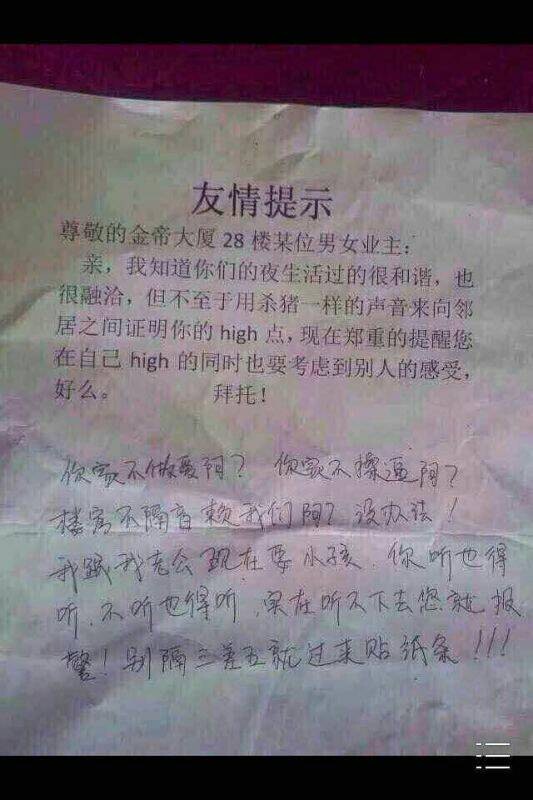 友情提示
尊敬的金帝大厦 28 楼某位男女业主：
亲，我知道你们的夜生活过的很和谐，也
很融洽，但不至于用杀猪一样的声音来向邻
居之间证明你的 high 点，现在郑重的提醒您
在自己 high 的同时也要考虑到别人的感受，
好么。 拜托！
你家不做爱阿？ 你家不操逼阿？
楼房不隔音赖我们阿？没办法！
我跟我老公现在要小孩．你听也得
听．不听也得听．实在听不下去您就报
警！别隔三差五就过来贴纸条！！！